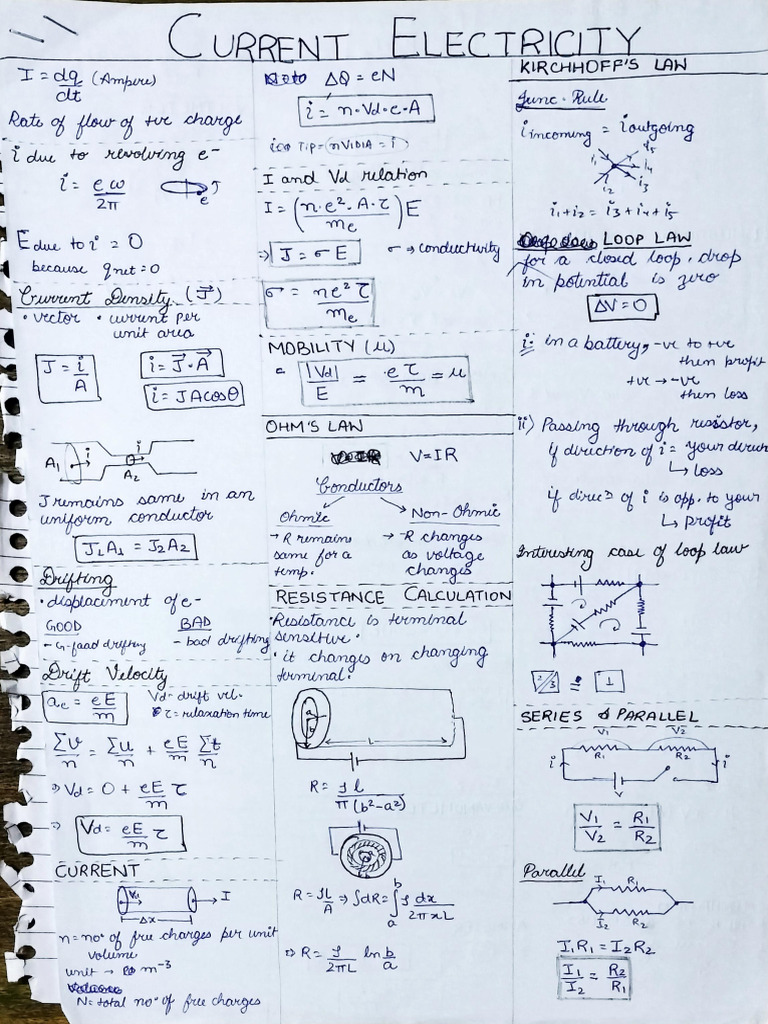 CURRENT ELECTRICITY
I = dq/dt (Ampere)
Rate of flow of +ve charge
i due to revolving e-
i = eω/2π
e
E due to i = 0
because qnet = 0
Current Density (J⃗)
• vector • current per
unit area
J = i/A
i = J⃗·A⃗
i = JAcosθ
A1 i i
A2
J remains same in an
uniform conductor
J1A1 = J2A2
Drifting
• displacement of e-
GOOD BAD
- G-faad drifting - bad drifting
Drift Velocity
ae = eE/m
Vd = drift vel.
τ = relaxation time
Σv/n = Σu/n + eE/m Σt/n
⇒ Vd = 0 + eE/m τ
⇒ Vd = eE/m τ
CURRENT
I
Δx
n = no° of free charges per unit
volume
unit → m-3
N = total no° of free charges
ΔQ = eN
i = n·Vd·e·A
TIP = nVIDIA = i
I and Vd relation
I = (n·e²·A·τ/me) E
⇒ J = σE σ → conductivity
σ = ne²τ/me
MOBILITY (μ)
= |Vd|/E = eτ/m = μ
OHM'S LAW
V=IR
Conductors
Ohmic Non-Ohmic
→ R remains → R changes
same for a as voltage
temp. changes
RESISTANCE CALCULATION
• Resistance is terminal
sensitive.
• it changes on changing
terminal.
a
b
L
R = ρl/π(b²-a²)
R = ρL/A ⇒ ∫dR = ∫ab ρ dx/2πxL
⇒ R = ρ/2πL ln b/a
KIRCHHOFF'S LAW
Junc. Rule
i incoming = i outgoing
i1 i2 i3 i4 i5
i1+i2 = i3+i4+i5
LOOP LAW
for a closed loop, drop
in potential is zero
ΔV=0
i: in a battery, -ve to +ve
then profit
+ve → -ve
then loss
ii) Passing through resistor,
if direction of i = your direcn
↳ loss
if direcn of i is opp. to your
↳ profit
Interesting case of loop law
2/3 : 1
SERIES & PARALLEL
V1 V2
R1 R2
i i
V1/V2 = R1/R2
Parallel
I1 R1
I2 R2
I1R1 = I2R2
I1/I2 = R2/R1